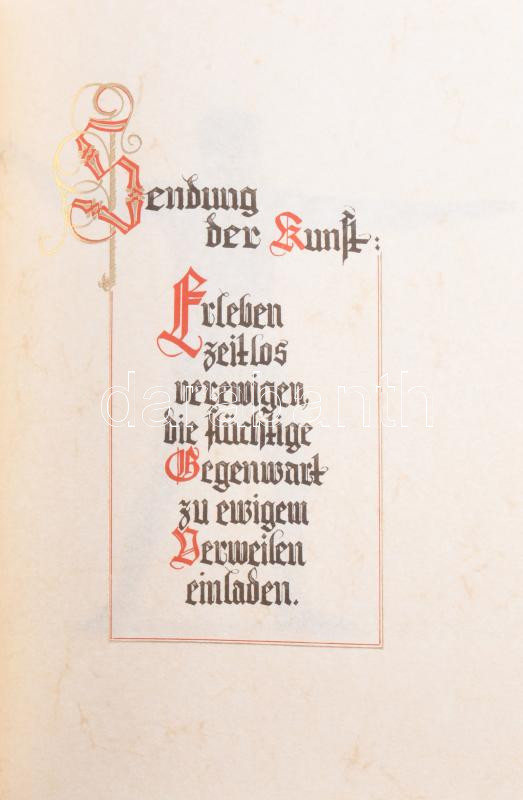 Sendung
der Kunst:
Erleben
zeitlos
verewigen,
die flüchtige
Gegenwart
zu ewigem
Verweilen
einladen.
darabanth